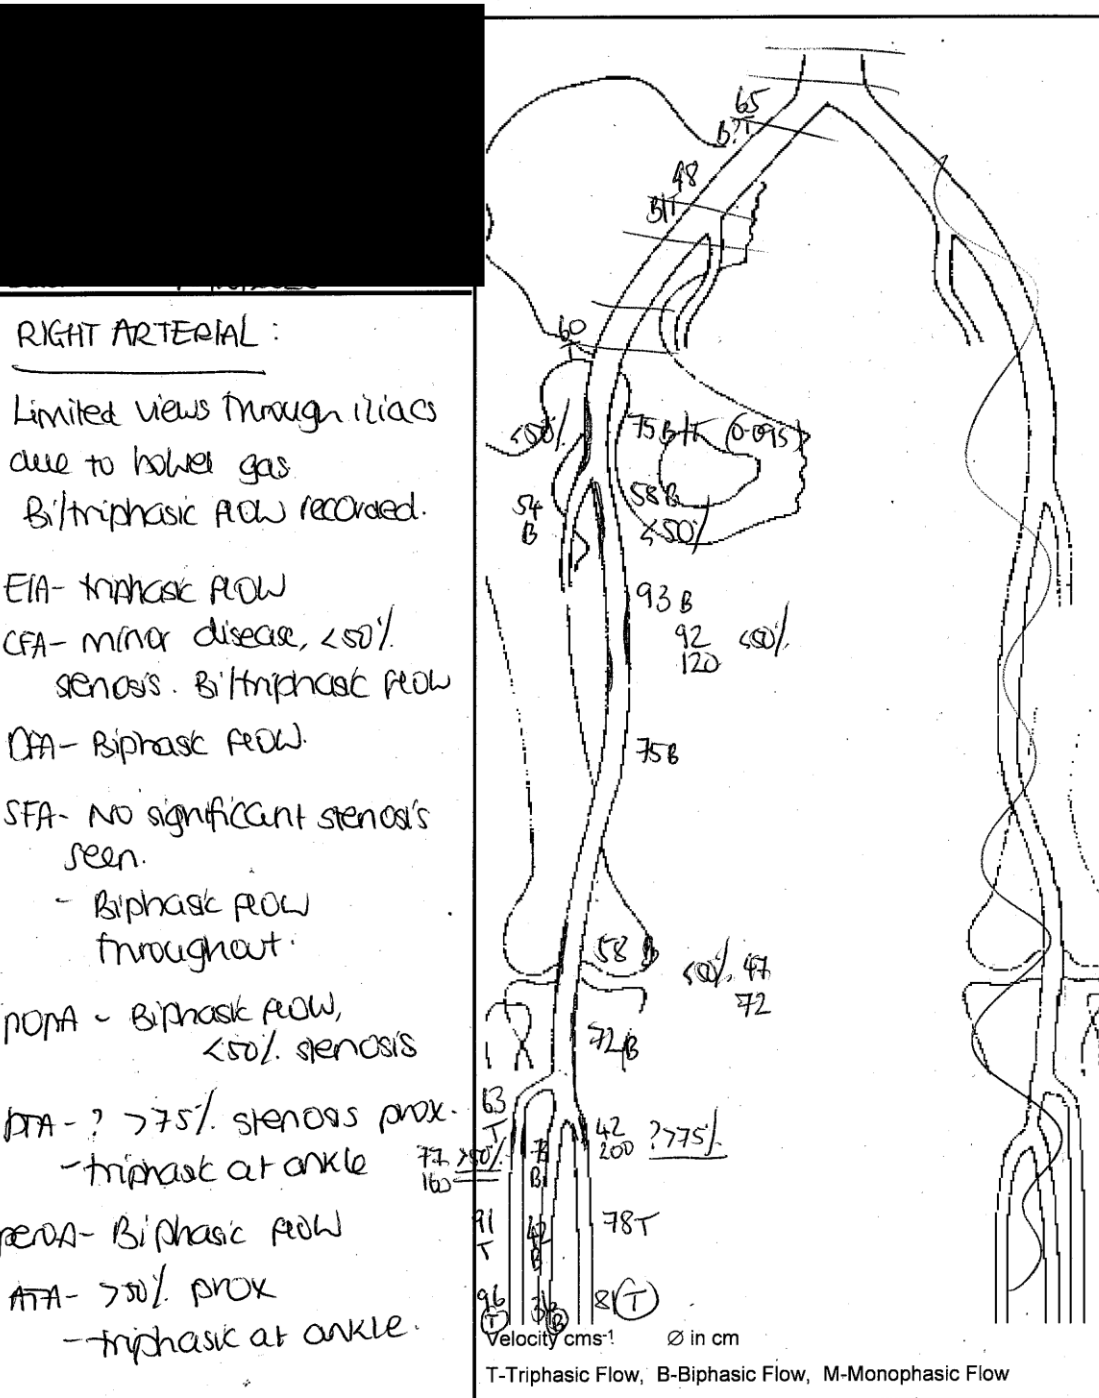 RIGHT ARTERIAL :
Limited views through iliacs
due to bowel gas
Bi/triphasic flow recorded.
EIA- triphasic flow
CFA- minor disease, <50%
stenosis. Bi/triphasic flow
DFA- Biphasic flow.
SFA- No significant stenosis
seen.
- Biphasic flow
throughout.
POPA - Biphasic flow,
<50% stenosis
PTA- ? >75% stenosis prox.
-triphasic at ankle
PEROA- Biphasic flow
ATA- >50% prox
-triphasic at ankle.
65
B?T
48
B/T
60
T
<50%
75 B/T (0.09s)
54
B
58 B
<50%
93 B
92 <50%
120
75 B
58 B
<50% 47
72
72 B
63
T
42
200 ?>75%
77 >50%
160
B
91
T
42
B
78 T
96
T
B
81 T
Velocity cms-1 Ø in cm
T-Triphasic Flow, B-Biphasic Flow, M-Monophasic Flow